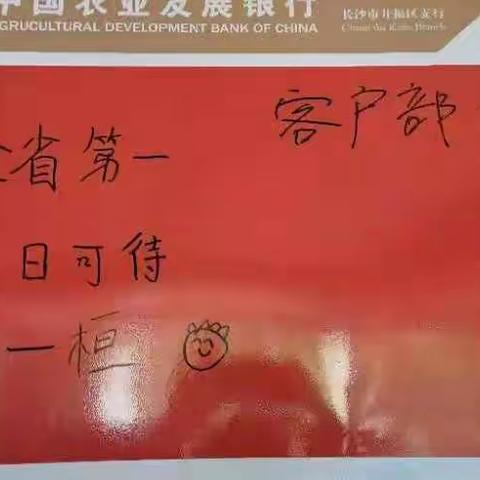 中国农业发展银行
GRUCULTURAL DEVELOPMENT BANK OF CHINA
长沙市开福区支行
客户部
全省第一
日可待
一桓